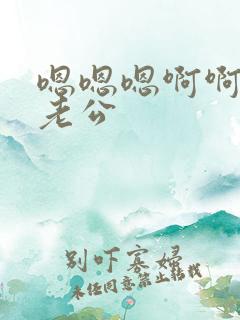 嗯嗯嗯啊啊
老公
别吓寡妇
未经同意禁止转载